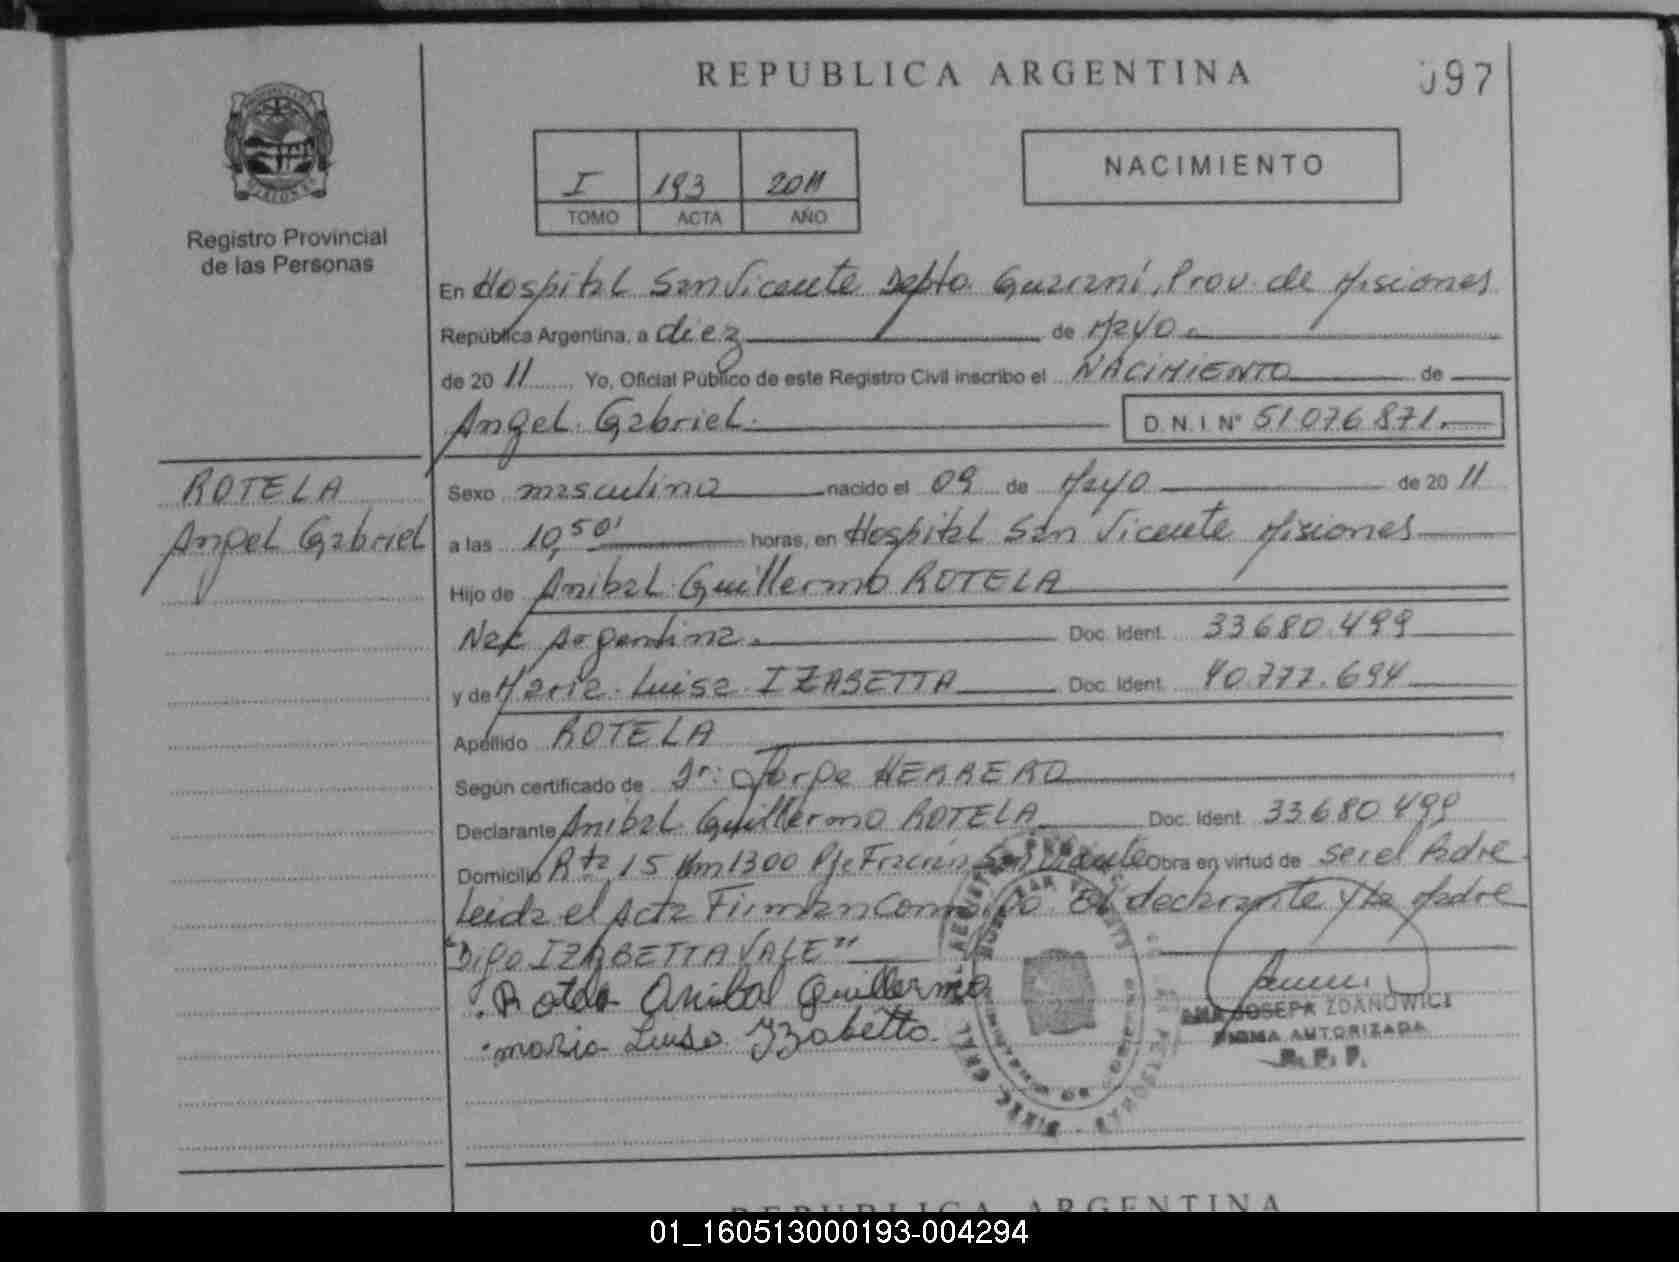 REPUBLICA ARGENTINA
097
I 193 2011
TOMO ACTA AÑO
NACIMIENTO
Registro Provincial
de las Personas
En Hospital San Vicente Depto. Guaraní, Prov. de Misiones
República Argentina, a diez de Mayo
de 20 11 Yo, Oficial Público de este Registro Civil inscribo el NACIMIENTO de
Angel Gabriel
D.N.I. Nº 51076871
ROTELA
Angel Gabriel
Sexo masculino nacido el 09 de Mayo de 20 11
a las 10,50' horas, en Hospital San Vicente Misiones
Hijo de Anibal Guillermo ROTELA
Nac Argentina Doc. Ident. 33680.499
y de Maria Luisa IZASETTA Doc. Ident. 40.777.694
Apellido ROTELA
Según certificado de Dr: Jorge HERRERO
Declarante Anibal Guillermo ROTELA Doc. Ident. 33680499
Domicilio Rta 15 Km1300 Pje Francés San Vicente Obra en virtud de ser el Padre
Leida el Acta Firman Conmigo El declarante y La Madre
"Digo IZABETTA VALE"
Rotela Anibal Guillermo
maria Luisa Izabetta
JOSEPA ZDANOWICZ
FIRMA AUTORIZADA
R.P.P.
REPUBLICA ARGENTINA
01_160513000193-004294